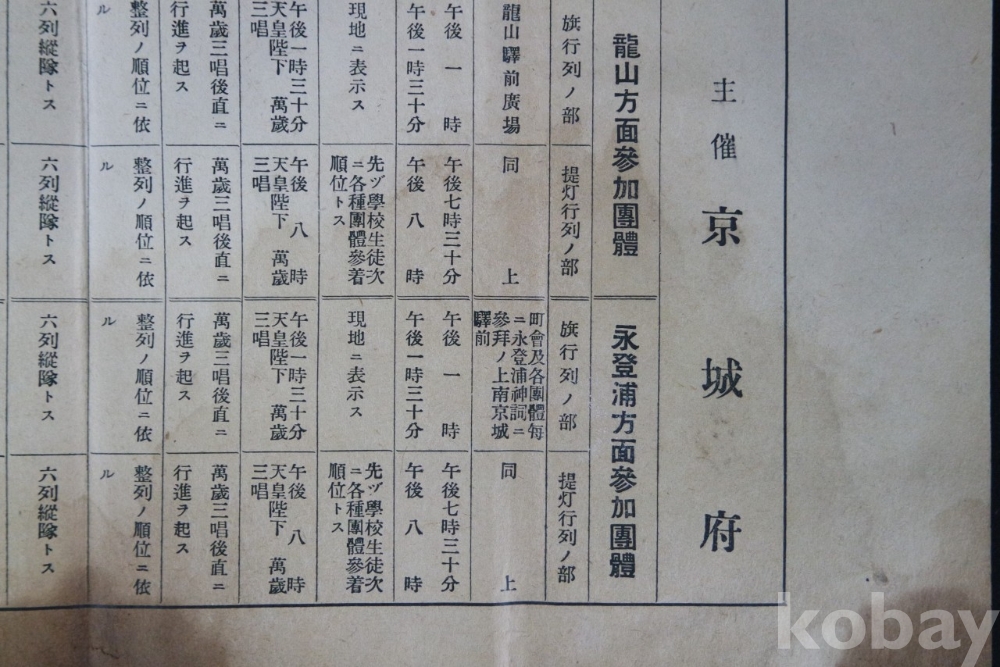 主催 京城府
龍山方面參加團體
永登浦方面參加團體
旗行列ノ部
提灯行列ノ部
旗行列ノ部
提灯行列ノ部
龍山驛前廣場
同上
町會及各團體每
ニ永登浦神詞ニ
參拜ノ上南京城
驛前
同上
午後一時
午後一時三十分
午後七時三十分
午後八時
午後一時
午後一時三十分
午後七時三十分
午後八時
現地ニ表示ス
先ヅ學校生徒次
ニ各種團體參着
順位トス
現地ニ表示ス
先ヅ學校生徒次
ニ各種團體參着
順位トス
午後一時三十分
天皇陛下 萬歲
三唱
午後八時
天皇陛下 萬歲
三唱
午後一時三十分
天皇陛下 萬歲
三唱
午後八時
天皇陛下 萬歲
三唱
萬歲三唱後直ニ
行進ヲ起ス
萬歲三唱後直ニ
行進ヲ起ス
萬歲三唱後直ニ
行進ヲ起ス
萬歲三唱後直ニ
行進ヲ起ス
整列ノ順位ニ依
ル
整列ノ順位ニ依
ル
整列ノ順位ニ依
ル
整列ノ順位ニ依
ル
六列縱隊トス
六列縱隊トス
六列縱隊トス
六列縱隊トス
kobay